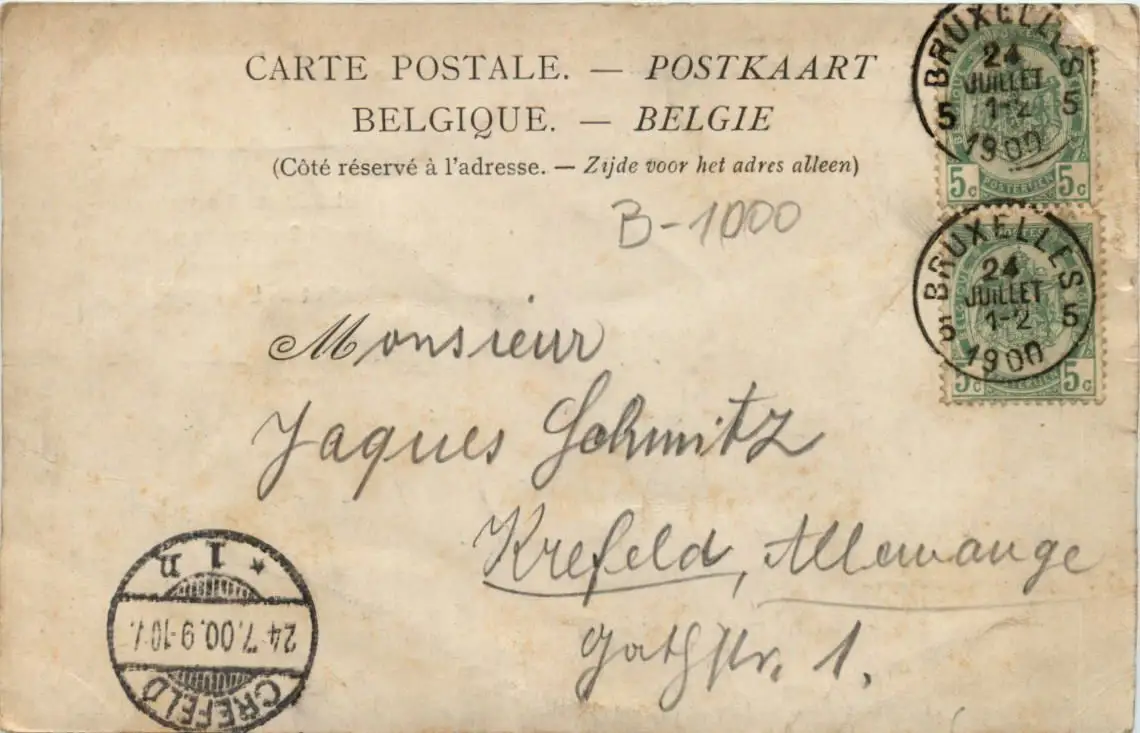 CARTE POSTALE. — POSTKAART
BELGIQUE. — BELGIE
(Côté réservé à l'adresse. — Zijde voor het adres alleen)
B-1000
BRUXELLES
24
JUILLET
5 1-2 5
1900
5c POSTERIJEN 5c
BRUXELLES
24
JUILLET
5 1-2 5
1900
5c POSTERIJEN 5c
Monsieur
Jaques Schmitz
Krefeld, Allemange
Gathstr. 1.
CREFELD
24.7.00.9-10
* 1 n